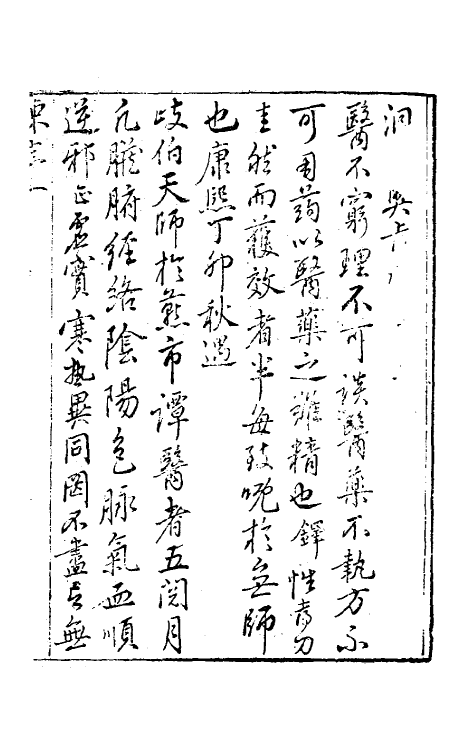 洞
醫不窮理不可談醫藥不執方不
可用药以醫藥之難精也鐸性嗜刀
圭然而獲效者半每致嘅於無師
也康熙丁卯秋遇
岐伯天師於燕市譚醫者五閱月
凡臟腑經絡陰陽色脉氣血順
逆邪正虛實寒热異同罔不盡言無